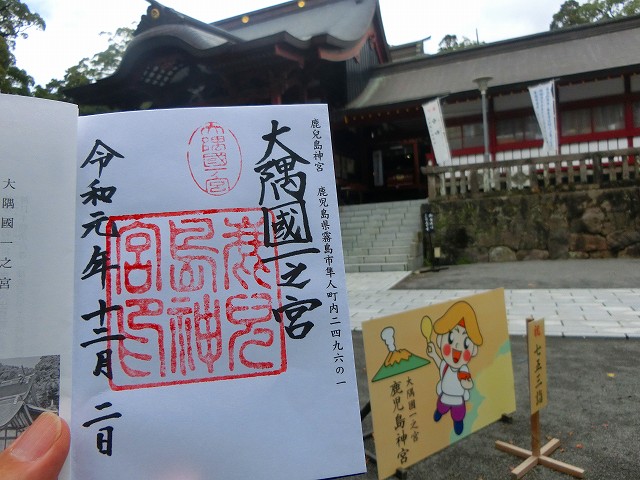 鹿兒島神宮　鹿児島県霧島市隼人町内二四九六の一
大隅國一之宮
大隅國一之宮
鹿兒島神宮印
令和元年十二月二日
大隅國一之宮
大隅國一之宮
鹿児島神宮
祝七五三詣